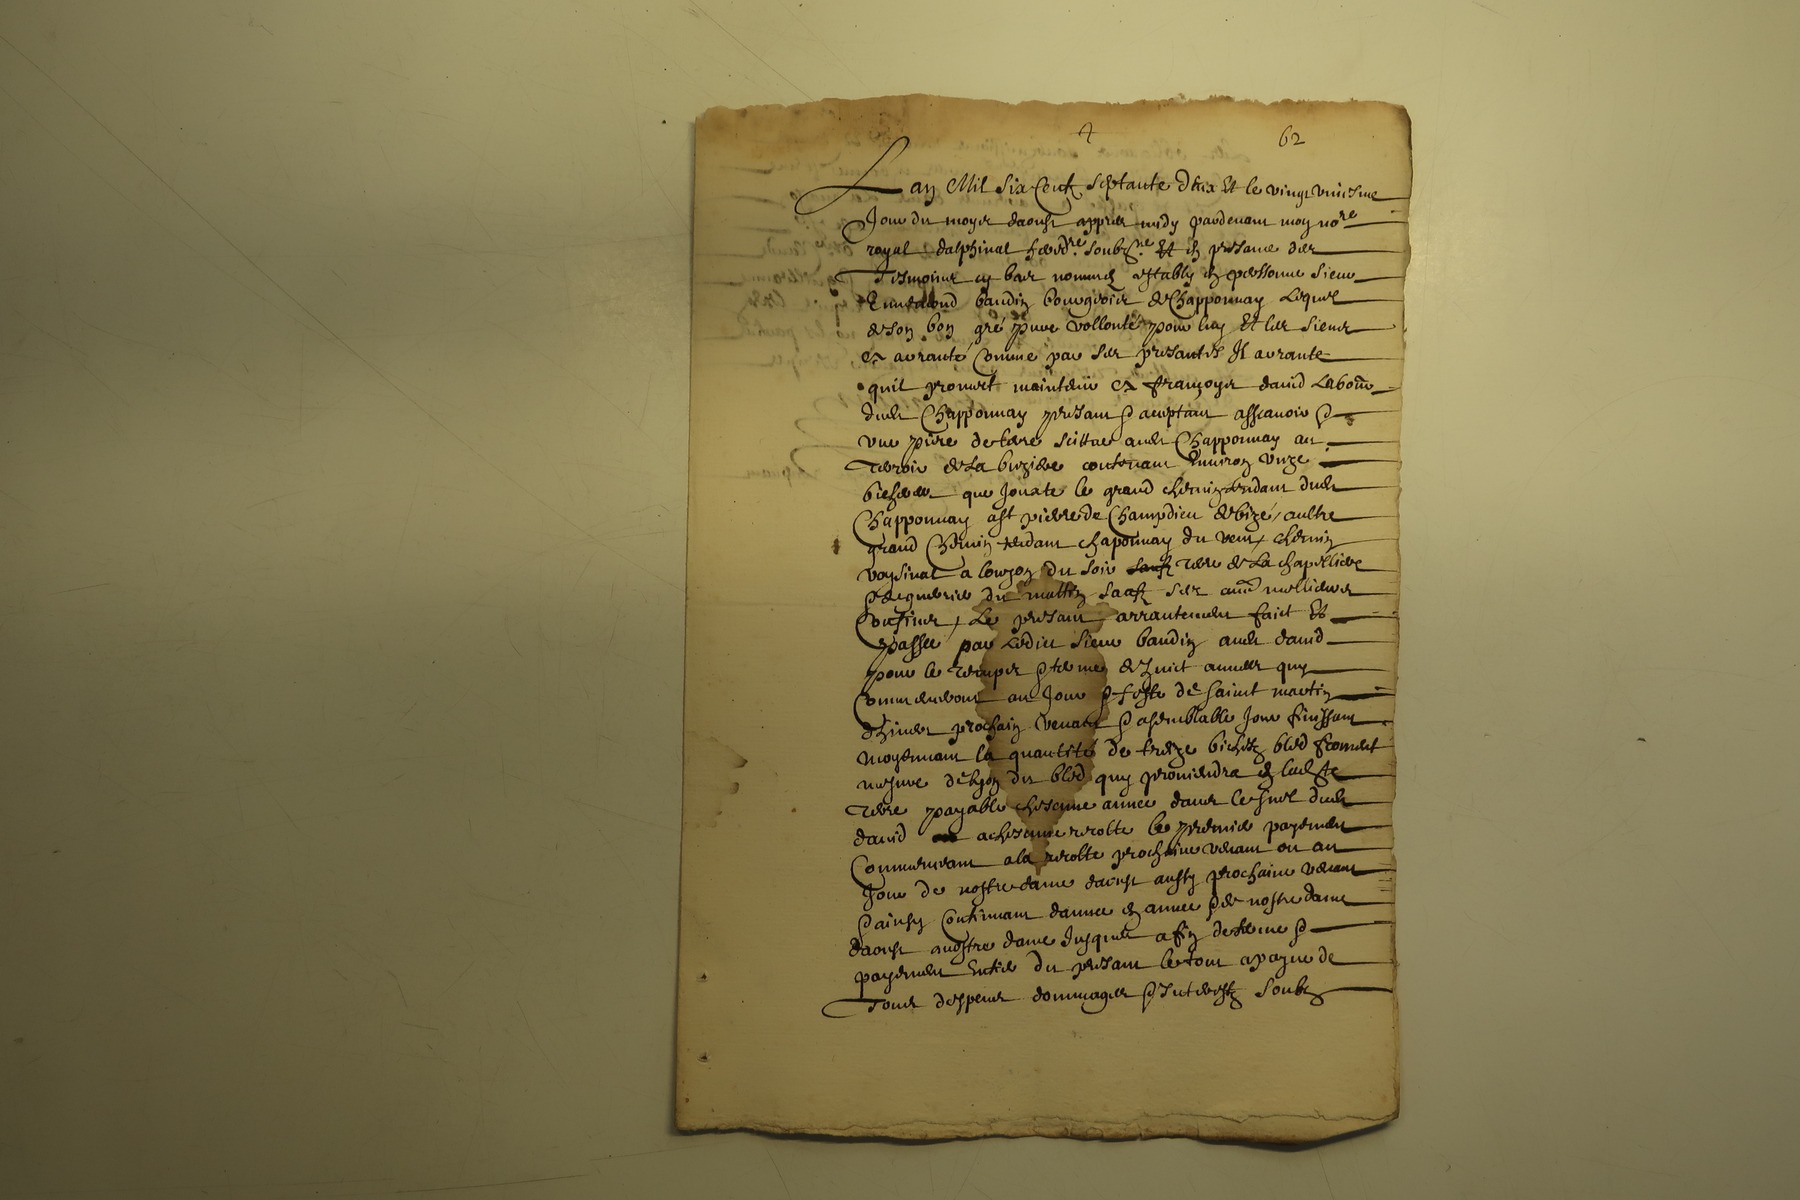 62
Lan Mil Six Centz Septante deux Et le vingt uniesme
Jour du moys daoust appres midy pardevant moy no.re
royal dalphinal hered.re soubz.ne Et en presance des
Tesmoins cy bas nommes estably en personne Sieur
Ennemond baudin bourgeois de Chapponnay Lequel
de son bon gré pure vollonté pour luy Et les siens
a arranté comme par ses presantes Il arrante
quil promet maintenir a françoys david Labour
dud Chapponnay presant & aceptant assavoir
une piece de terre scittue aud Chapponnay au
Terroir de La contenant Environ unze
bicheres que Jouxte le grand chemin tendant dud
Chapponnay a st pierre de Champdieu de bize, aultre
grand Chemin tendant chaponnay du vent, chemin
voysinal a du soir terre de La chapelliere
du mattin saufz ses meilleurs
Confins, Le presant arrantement faict Et
passé par Ledict Sieur baudin aud david
pour le temps & terme de huict annees quy
Commenceront au Jour & feste de saint martin
dhiver prochain venant & a semblable Jour finissant
moyennant la quantité de treize bichetz bled froment
mesure de Lyon du bled quy proviendra en lad
Terre payable chescune annee dans dud
david a chescune recolte le premier payement
Commencant a la recolte prochaine venant ou au
Jour de nostre dame daoust prochaine venant
& ainsy Continuant dannee en annee & de nostre dame
daoust a nostre dame Jusques a fin de terme &
payement Entier du presant le tout a payne de
Tous despens dommages & Interestz Soubz